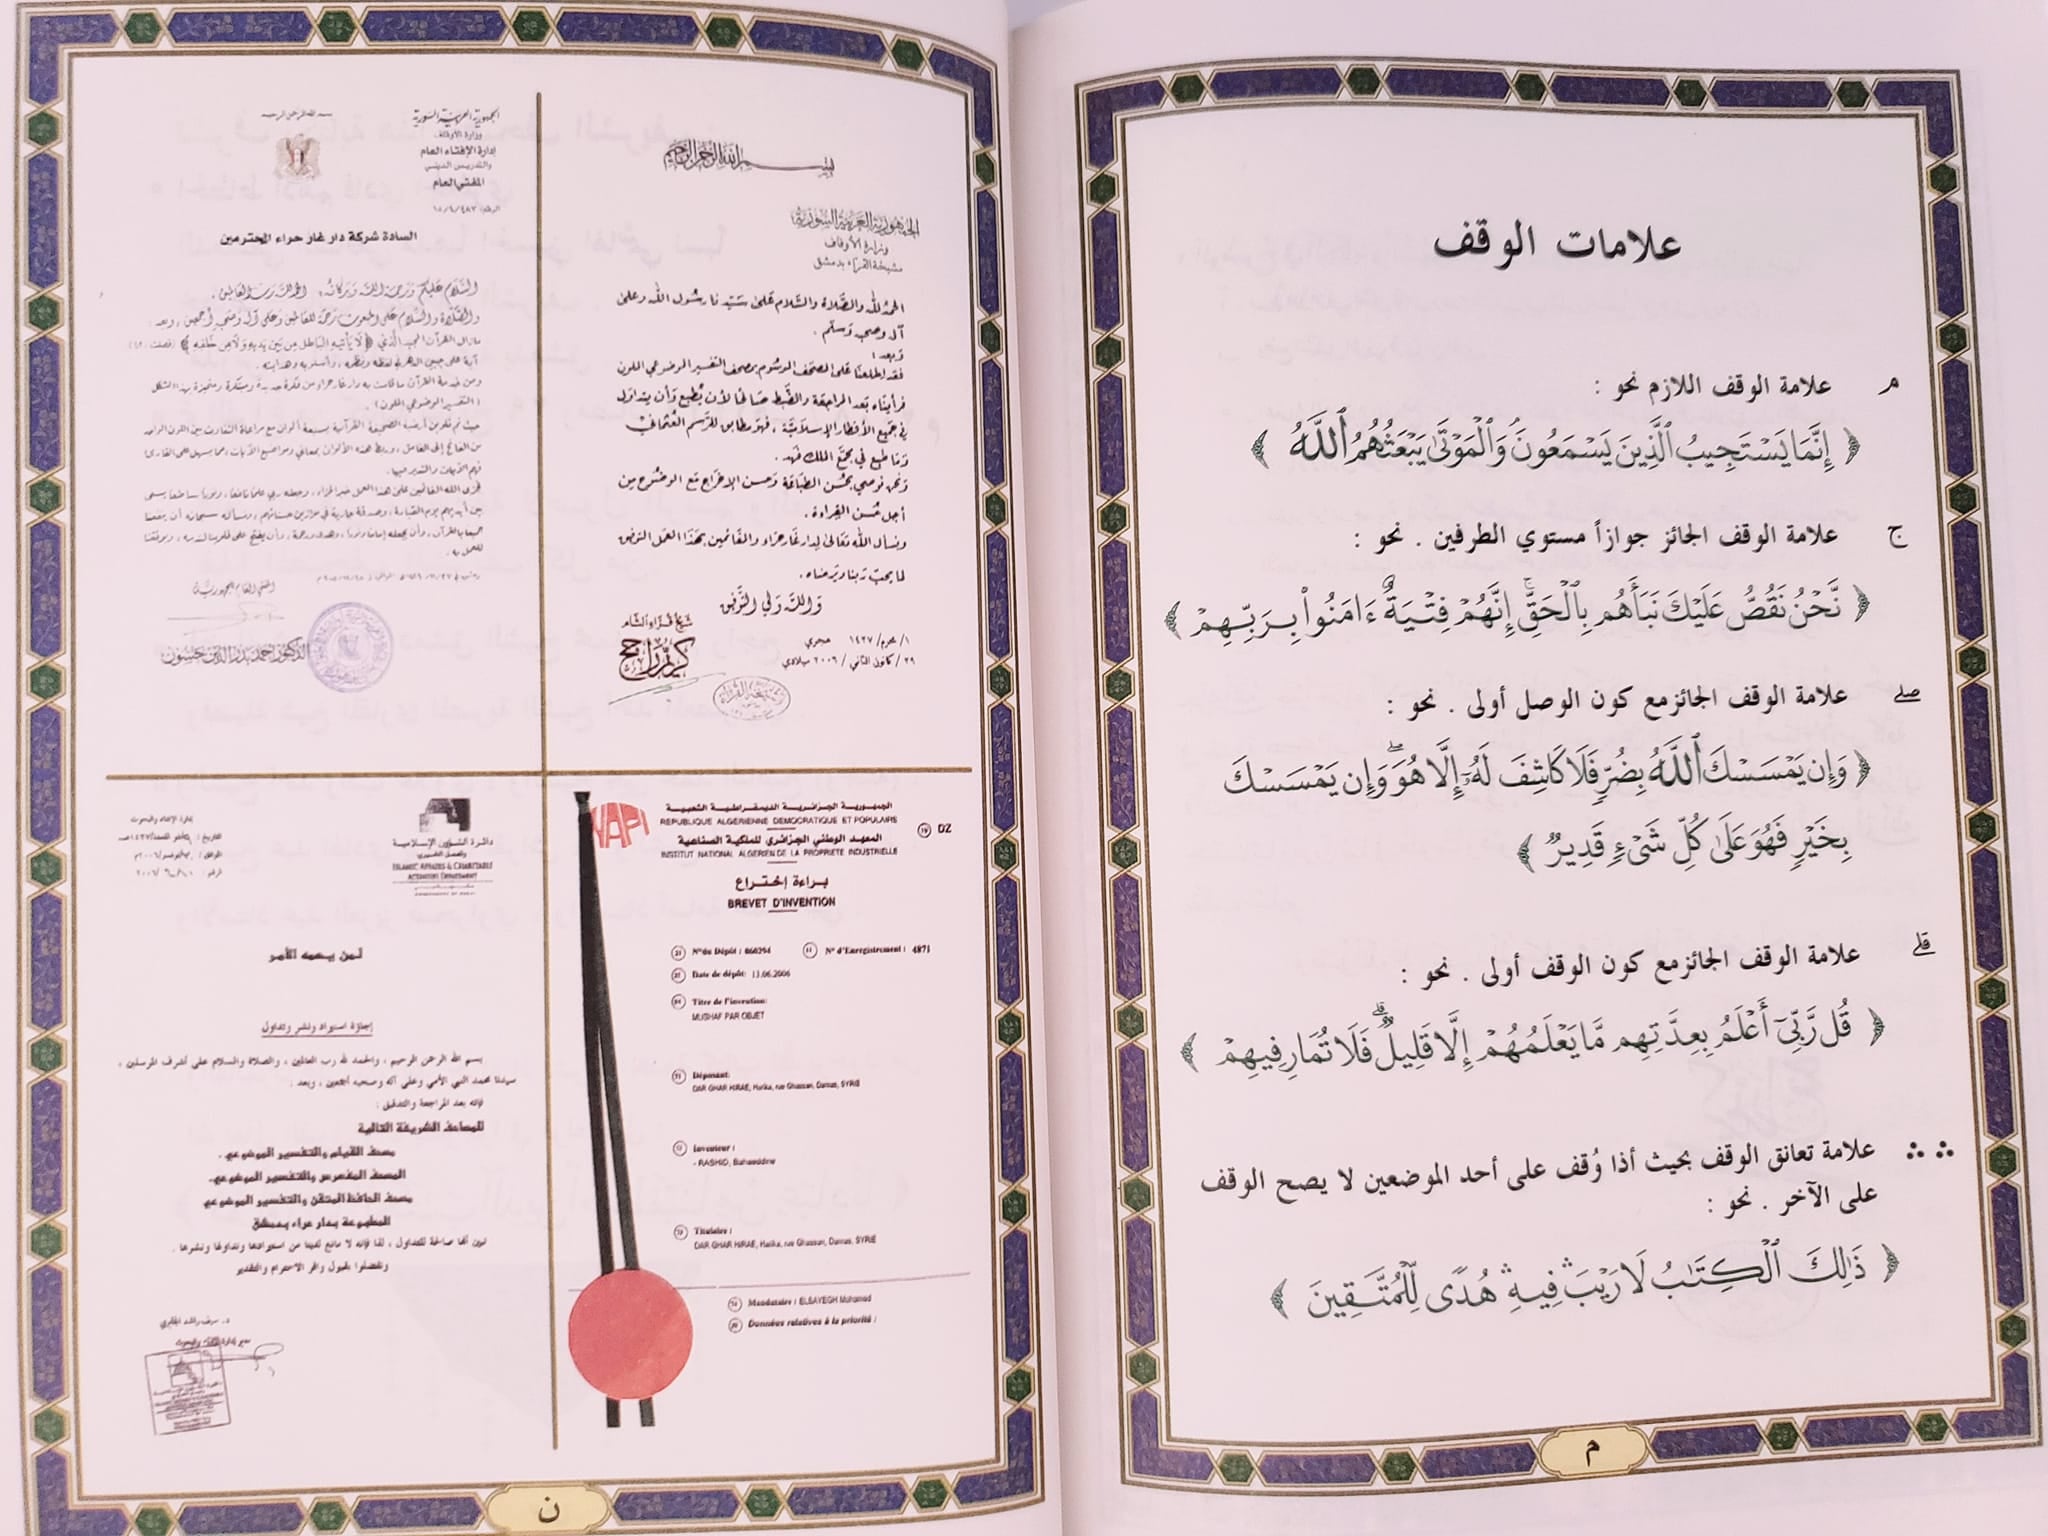 علامات الوقف
م علامة الوقف اللازم نحو :
﴿ إِنَّمَا يَسْتَجِيبُ ٱلَّذِينَ يَسْمَعُونَ ۘ وَٱلْمَوْتَىٰ يَبْعَثُهُمُ ٱللَّهُ ﴾
ج علامة الوقف الجائز جوازاً مستوي الطرفين . نحو :
﴿ نَّحْنُ نَقُصُّ عَلَيْكَ نَبَأَهُم بِٱلْحَقِّ ۚ إِنَّهُمْ فِتْيَةٌ ءَامَنُوا۟ بِرَبِّهِمْ ﴾
صلے علامة الوقف الجائز مع كون الوصل أولى . نحو :
﴿ وَإِن يَمْسَسْكَ ٱللَّهُ بِضُرٍّ فَلَا كَاشِفَ لَهُۥٓ إِلَّا هُوَ ۖ وَإِن يَمْسَسْكَ
بِخَيْرٍ فَهُوَ عَلَىٰ كُلِّ شَىْءٍ قَدِيرٌ ﴾
قلے علامة الوقف الجائز مع كون الوقف أولى . نحو :
﴿ قُل رَّبِّىٓ أَعْلَمُ بِعِدَّتِهِم مَّا يَعْلَمُهُمْ إِلَّا قَلِيلٌ ۗ فَلَا تُمَارِ فِيهِمْ ﴾
∴ ∴ علامة تعانق الوقف بحيث أذا وُقف على أحد الموضعين لا يصح الوقف
على الآخر . نحو :
﴿ ذَٰلِكَ ٱلْكِتَٰبُ لَا رَيْبَ ۛ فِيهِ ۛ هُدًى لِّلْمُتَّقِينَ ﴾
م
بسم الله الرحمن الرحيم
الجمهورية العربية السورية
وزارة الأوقاف
مشيخة القراء بدمشق
الحمد لله والصلاة والسلام على سيدنا رسول الله وعلى
آله وصحبه وسلم .
وبعد :
فقد اطلعنا على المصحف الموسوم بمصحف التفسير الموضوعي الملون
فرأيناه بعد المراجعة والضبط صالحاً لأن يُطبع وأن يتداول
في جميع الأقطار الإسلامية ، فهو مطابق للرسم العثماني
وما طبع في مجمع الملك فهد .
ونحن نوصي بحسن الطباعة وحسن الإخراج مع الوضوح من
أجل حُسن القراءة .
ونسأل الله تعالى لدار غار حراء والقائمين بهذا العمل التوفيق
لما يحبه ربنا ويرضاه .
والله ولي التوفيق
شيخ قراء الشام
كريم راجح
١/ محرم / ١٤٢٧ هجري
٢٩/ كانون الثاني / ٢٠٠٦ ميلادي
بسم الله الرحمن الرحيم
الجمهورية العربية السورية
وزارة الأوقاف
إدارة الإفتاء العام
والتدريس الديني
المفتي العام
السادة شركة دار غار حراء المحترمين
السلام عليكم ورحمة الله وبركاته : الحمد لله رب العالمين ،
والصلاة والسلام على المبعوث رحمة للعالمين وعلى آله وصحبه أجمعين ، وبعد :
( التفسير الموضوعي الملون ) .
المفتي العام للجمهورية
الدكتور احمد بدر الدين حسون
الجمهورية الجزائرية الديمقراطية الشعبية
REPUBLIQUE ALGERIENNE DEMOCRATIQUE ET POPULAIRE
المعهد الوطني الجزائري للملكية الصناعية
INSTITUT NATIONAL ALGERIEN DE LA PROPRIETE INDUSTRIELLE
19 DZ
براءة إختراع
BREVET D'INVENTION
21 N°du Dépôt : 060294
11 N° d'Enregistrement : 4871
22 Date de dépôt: 13.06.2006
54 Titre de l'invention:
MUSHAF PAR OBJET
71 Déposant:
DAR GHAR HIRAE, Harika, rue Ghassan, Damas, SYRIE
Inventeur :
- RASHID, Bahaeddine
73 Titulaire :
DAR GHAR HIRAE, Harika, rue Ghassan, Damas, SYRIE
74 Mandataire : ELSAYEGH Mohamed
30 Données relatives à la priorité :
دائرة الشؤون الإسلامية
والعمل الخيري
ISLAMIC AFFAIRS & CHARITABLE
ACTIVITIES DEPARTMENT
إدارة الإفتاء والبحوث
لمن يهمه الأمر
إجازة استيراد ونشر وتداول
بسم الله الرحمن الرحيم ، والحمد لله رب العالمين ، والصلاة والسلام على أشرف المرسلين ،
سيدنا محمد النبي الأمي وعلى آله وصحبه أجمعين ، وبعد :
فإنه بعد المراجعة والتدقيق :
للمصاحف الشريفة التالية
مصحف القيام والتفسير الموضوعي .
المصحف المفهرس والتفسير الموضوعي .
مصحف الحافظ المتقن والتفسير الموضوعي
المطبوعة بدار حراء بدمشق
تبين أنها صالحة للتداول ، لذا فإنه لا مانع لدينا من استيرادها وتداولها ونشرها .
وتفضلوا بقبول وافر الاحترام والتقدير
ن